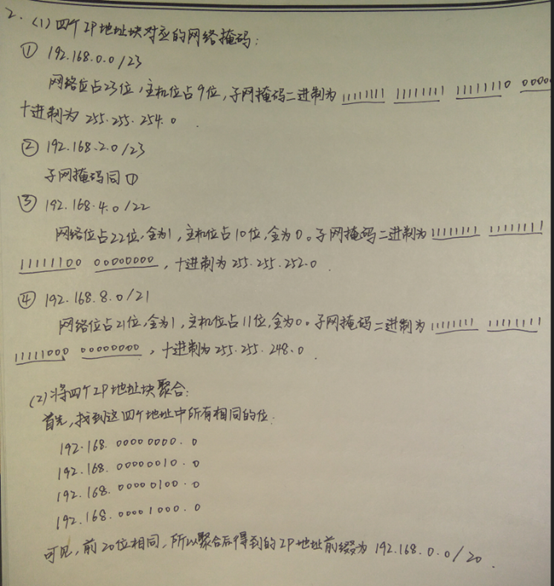 2. (1) 四个IP地址块对应的网络掩码:
① 192.168.0.0/23
网络位占23位,主机位占9位,子网掩码二进制为 11111111 11111111 11111110 0000
十进制为 255.255.254.0.
② 192.168.2.0/23
子网掩码同①
③ 192.168.4.0/22
网络位占22位,全为1,主机位占10位,全为0。子网掩码二进制为 11111111 11111111
11111100 00000000,十进制为255.255.252.0.
④ 192.168.8.0/21
网络位占21位,全为1,主机位占11位,全为0。子网掩码二进制为 11111111 11111111
11111000 00000000,十进制为255.255.248.0.
(2)将四个IP地址块聚合:
首先,找到这四个地址中所有相同的位:
192.168.00000000.0
192.168.00000010.0
192.168.00000100.0
192.168.00001000.0
可见,前20位相同,所以聚合后得到的IP地址前缀为192.168.0.0/20.